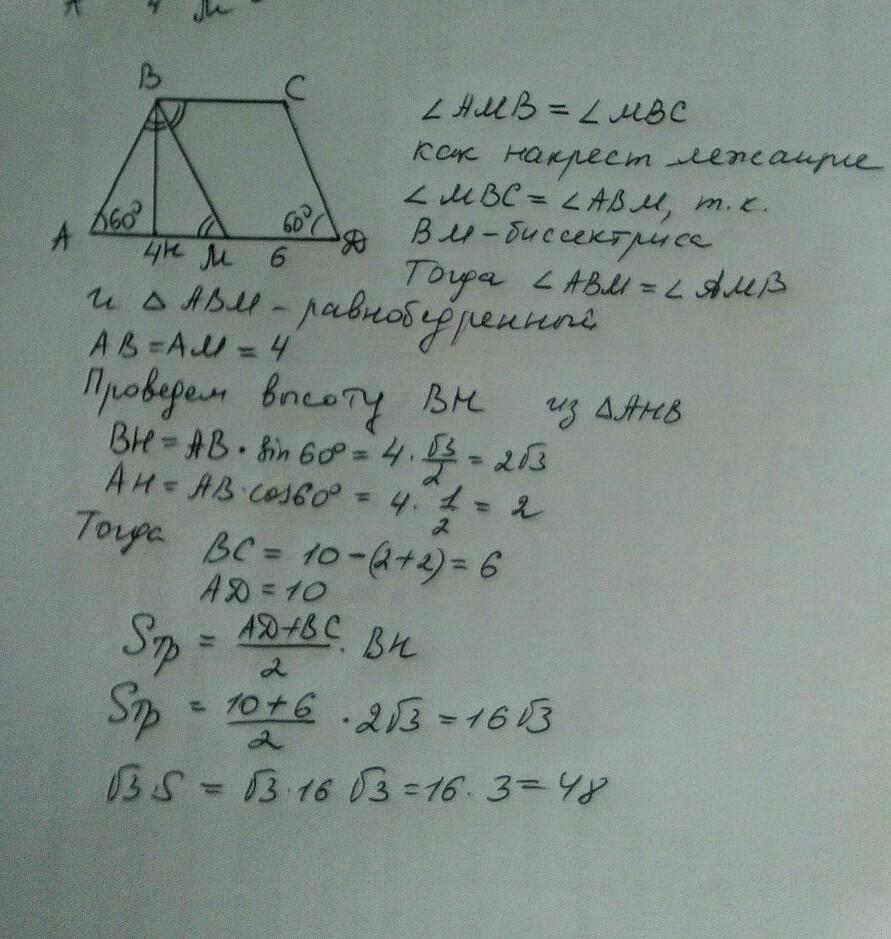 B C
A 60° 60° D
4 H M 6
∠AMB = ∠MBC
как накрест лежащие
∠MBC = ∠ABM, т.к.
BM - биссектриса
Тогда ∠ABM = ∠AMB
и △ ABM - равнобедренный
AB = AM = 4
Проведем высоту BH из △AHB
BH = AB · sin 60° = 4 · √3/2 = 2√3
AH = AB · cos60° = 4 · 1/2 = 2
Тогда
BC = 10 - (2+2) = 6
AD = 10
Sтр = AD+BC/2 · BH
Sтр = 10+6/2 · 2√3 = 16√3
√3·S = √3·16√3 = 16·3 = 48